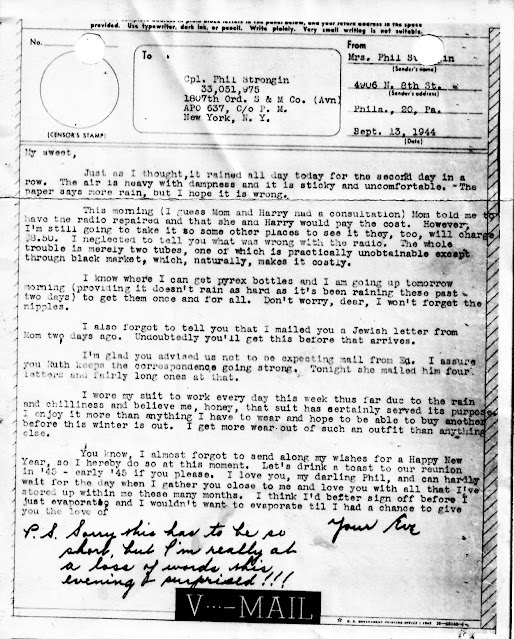 provided. Use typewriter, dark ink, or pencil. Write plainly. Very small writing is not suitable.
No.
(CENSOR'S STAMP)
To
Cpl. Phil Strongin
33,051,975
1807th Ord. S & M Co. (Avn)
APO 637, C/o P. M.
New York, N. Y.
From
Mrs. Phil St ongin
(Sender's name)
4906 N. 8th St.
(Sender's address)
Phila., 20, Pa.
Sept. 13, 1944
(Date)
My sweet,
Just as I thought,it rained all day today for the second day in a
row. The air is heavy with dampness and it is sticky and uncomfortable. The
paper says more rain, but I hope it is wrong.
This morning (I guess Mom and Harry had a consultation) Mom told me to
have the radio repaired and that she and Harry would pay the cost. However,
I'm still going to take it so some other places to see it they, too, will charge
$8.50. I neglected to tell you what was wrong with the radio. The whole
trouble is merely two tubes, one of which is practically unobtainable except
through black market, which, naturally, makes it costly.
I know where I can get pyrex bottles and I am going up tomorrow
morning (providing it doesn't rain as hard as it's been raining these past
two days) to get them once and for all. Don't worry, dear, I won't forget the
nipples.
I also forgot to tell you that I mailed you a Jewish letter from
Mom two days ago. Undoubtedly you'll get this before that arrives.
I'm glad you advised us not to be expecting mail from Ed. I assure
you Ruth keeps the correspondence going strong. Tonight she mailed him four
letters and fairly long ones at that.
I wore my suit to work every day this week thus far duc to the rain
and chilliness and believe me, honey, that suit has certainly served its purpose
I enjoy it more than anything I have to wear and hope to be able to buy another
before this winter is out. I get more wear out of such an outfit than anything
else.
You know, I almost forgot to send along my wishes for a Happy New
Year, so I hereby do so at this moment. Let's drink a toast to our reunion
in '45 - early '45 if you please. I love you, my darling Phil, and can hardly
wait for the day when I gather you close to me and love you with all that I've
stored up within me these many months. I think I'd better sign off before I
just evaporate and I wouldn't want to evaporate til I had a chance to give
you the love of
Your Eve
P.S. Sorry this has to be so
short, but I'm really at
a loss of words this
evening - surprised!!!
V···-MAIL